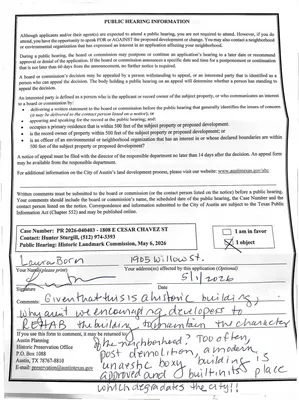 PUBLIC HEARING INFORMATION
Although applicants and/or their agent(s) are expected to attend a public hearing, you are not required to attend. However, if you do
attend, you have the opportunity to speak FOR or AGAINST the proposed development or change. You may also contact a neighborhood
or environmental organization that has expressed an interest in an application affecting your neighborhood.
During a public hearing, the board or commission may postpone or continue an application's hearing to a later date or recommend
approval or denial of the application. If the board or commission announces a specific date and time for a postponement or continuation
that is not later than 60 days from the announcement, no further notice is required.
A board or commission's decision may be appealed by a person with standing to appeal, or an interested party that is identified as a
person who can appeal the decision. The body holding a public hearing on an appeal will determine whether a person has standing to
appeal the decision.
An interested party is defined as a person who is the applicant or record owner of the subject property, or who communicates an interest
to a board or commission by:
• delivering a written statement to the board or commission before the public hearing that generally identifies the issues of concern
(it may be delivered to the contact person listed on a notice); or
• appearing and speaking for the record at the public hearing; and:
• occupies a primary residence that is within 500 feet of the subject property or proposed development;
• is the record owner of property within 500 feet of the subject property or proposed development; or
• is an officer of an environmental or neighborhood organization that has an interest in or whose declared boundaries are within
500 feet of the subject property or proposed development.
A notice of appeal must be filed with the director of the responsible department no later than 14 days after the decision. An appeal form
may be available from the responsible department.
For additional information on the City of Austin's land development process, please visit our website: www.austintexas.gov/abc
Written comments must be submitted to the board or commission (or the contact person listed on the notice) before a public hearing.
Your comments should include the board or commission's name, the scheduled date of the public hearing, the Case Number and the
contact person listed on the notice. Correspondence and information submitted to the City of Austin are subject to the Texas Public
Information Act (Chapter 552) and may be published online.
Case Number: PR 2026-040403 - 1808 E CESAR CHAVEZ ST
Contact: Hunter Sturgill, (512) 974-3393
Public Hearing: Historic Landmark Commission, May 6, 2026
I am in favor
X I object
Laura Born 1905 Willow St.
Your Name (please print) Your address(es) affected by this application (Optional)
5/1/2026
Signature Date
Comments: Given that this is a historic building,
why aren't we encouraging developers to
REHAB the building to maintain the character
If you use this form to comment, it may be returned to:
Austin Planning
Historic Preservation Office
P.O. Box 1088
Austin, TX 78767-8810
E-mail: preservation@austintexas.gov
of the neighborhood? Too often,
post demolition, a modern,
unaesthetic boxy building is
approved and built in its place
which degrades the city!!